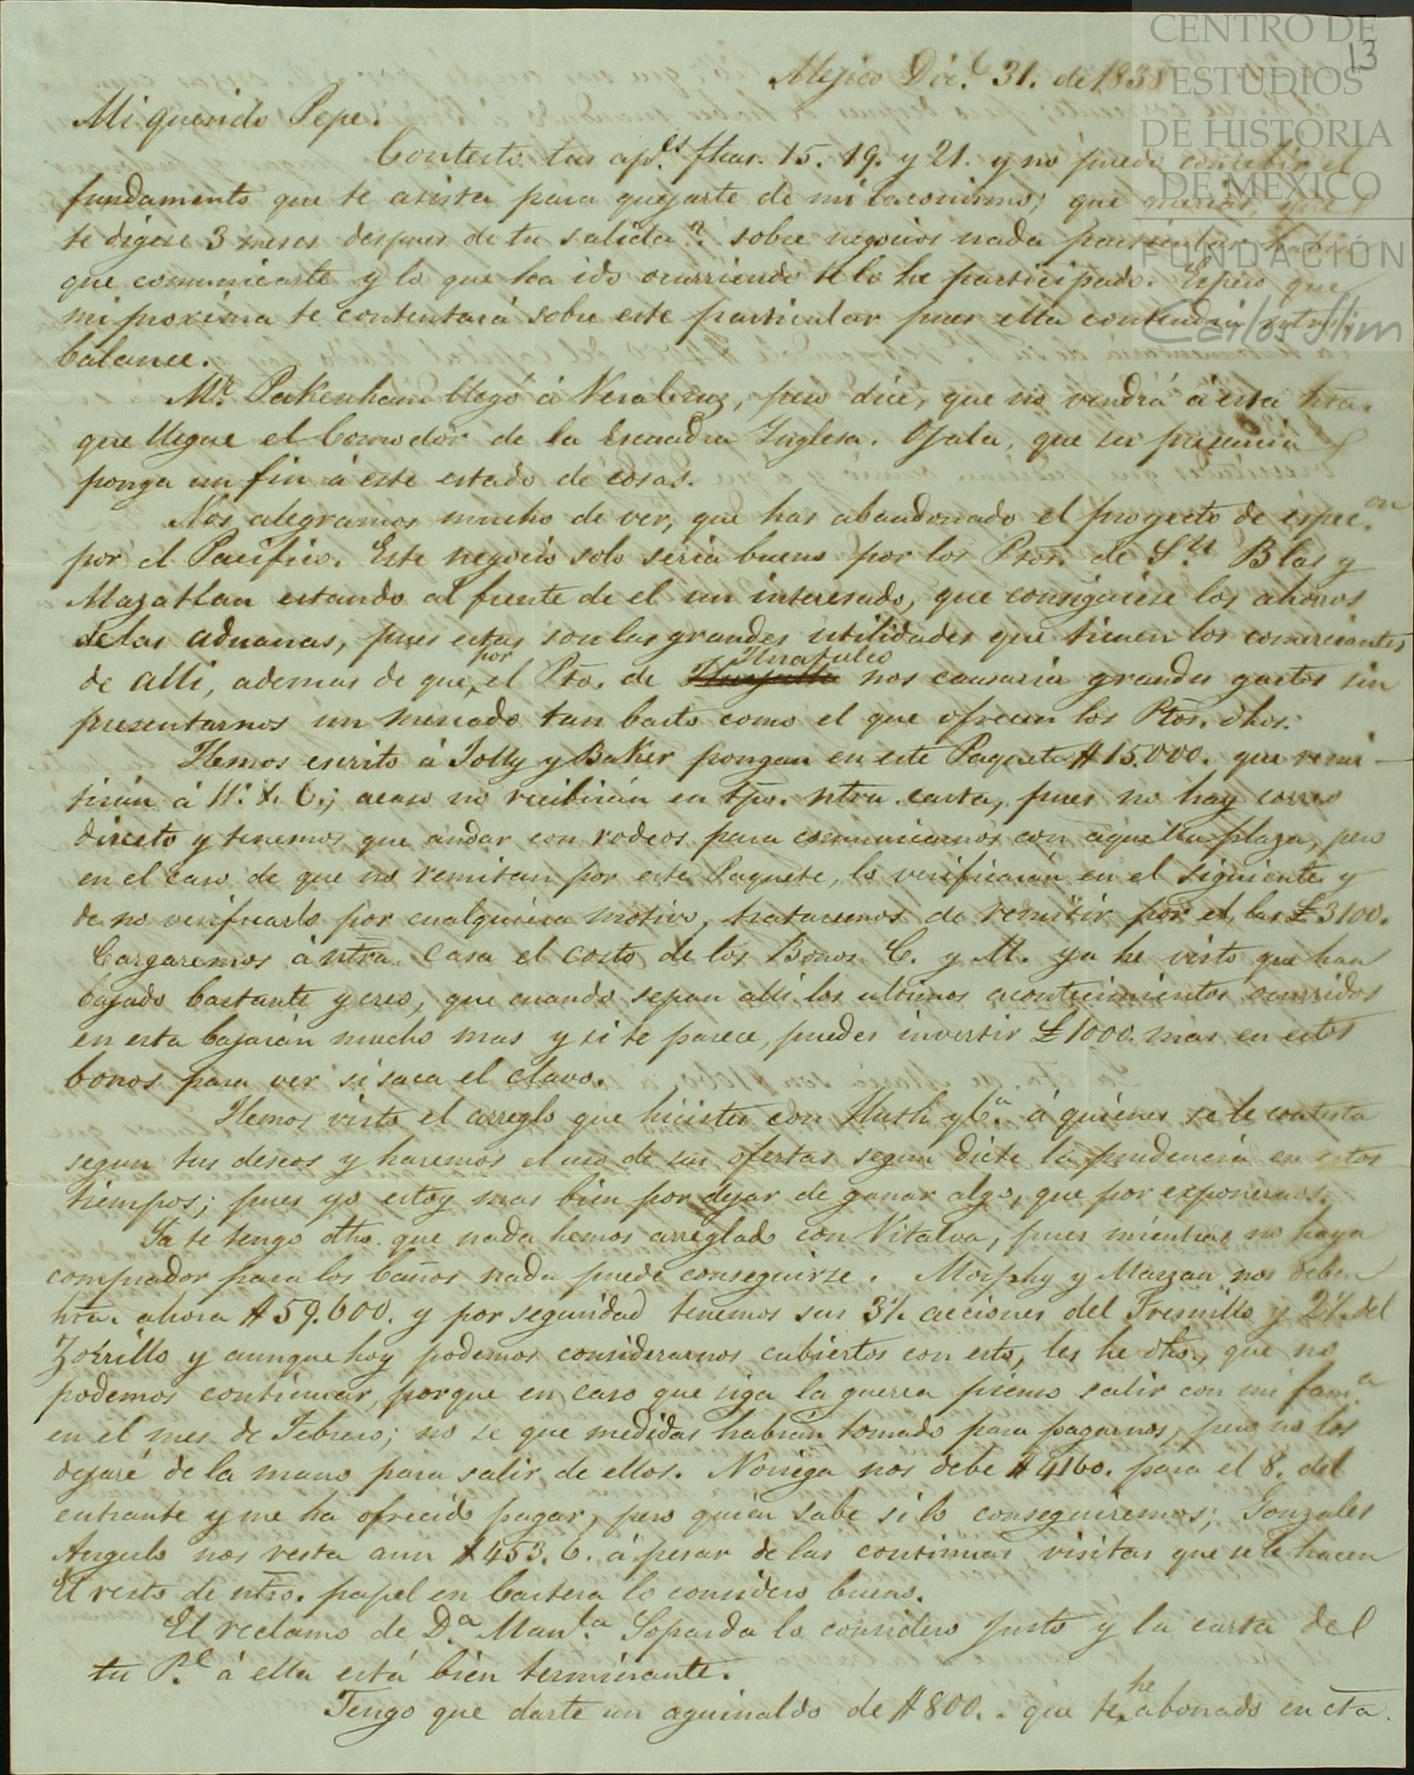 CENTRO DE
ESTUDIOS
DE HISTORIA
DE MÉXICO
FUNDACIÓN
Carlos Slim
13
Mejico Dic.e 31. de 183
Mi querido Pepe.
Contesto tus ap.es fhas. 15. 19. y 21. y no puedo concebir el
fundamento que te asista para quejarte de mi laconismo; que querias que
te digese 3 meses despues de tu salida? sobre negocios nada particular habia
que comunicarte y lo que ha ido ocurriendo te lo he participado. Espero que
mi proxima te contentará sobre este particular pues ella contendrá ntro.
balance.
Mr. Pakenham llegó á Veracruz, pero dice, que no vendrá á esta hta.
que llegue el Comodor de la Escuadra Inglesa. Ojala, que su presencia
ponga un fin á este estado de cosas.
Nos alegramos mucho de ver, que has abandonado el proyecto de espec.on
por el Pacifico. Este negocio solo seria bueno por los Ptos. de S.n Blas y
Mazatlan estando al frente de el un interesado, que consiguiese los ahorros
de las aduanas, pues estas son las grandes utilidades que tienen los comerciantes
de alli, ademas de que por el Pto. de nos causaria grandes gastos sin
presentarnos un mercado tan basto como el que ofrecen los Ptos. dhos.
Hemos escrito á Jolly y Baker pongan en este Paquete $15.000. que remi-
tirán á acaso no recibirán en tpo. ntra. carta, pues no hay correo
directo y tenemos que andar con rodeos para comunicarnos con aquella plaza, pero
en el caso de que no remitan por este Paquete, lo verificarán en el siguiente y
de no verificarlo por cualquiera motivo, trataremos de remitir por el, las £3100.
Cargaremos á ntra. Casa el costo de los Bonos C. y M. ya he visto que han
bajado bastante y creo, que cuando sepan alli los ultimos acontecimientos ocurridos
en esta bajarán mucho mas y si te parece, puedes invertir £1000. mas en estos
bonos para ver si saca el clavo.
Hemos visto el arreglo que hicistes con Huth y C.a á quienes se le contesta
segun tus deseos y haremos el uso de sus ofertas segun dicte la prudencia en estos
tiempos; pues yo estoy mas bien por dejar de ganar algo, que por exponernos.
Ya te tengo dho. que nada hemos arreglado con Vitalva, pues mientras no haya
comprador para los baños nada puede conseguirse. Morphy y Marzan nos deben
hta. ahora $59.600. y por seguridad tenemos sus 3½ acciones del Fresnillo y 2½ del
Zorrillo y aunque hoy podemos considerarnos cubiertos con esto, les he dho., que no
podemos continuar, porque en caso que siga la guerra pienso salir con mi fam.a
en el mes de Febrero; no se que medidas habrán tomado para pagarnos, pero no los
dejaré de la mano para salir de ellos. Noriega nos debe $4160. para el 8. del
entrante y me ha ofrecido pagar, pero quien sabe si lo conseguiremos; Gonzales
Angulo nos resta aun $453.6. á pesar de las continuas visitas que se le hacen
El resto de ntro. papel en Cartera lo considero bueno.
El reclamo de D.a Man.la Soparda lo considero justo y la carta del
tu P.e á ella está bien terminante.
Tengo que darte un aguinaldo de $800.. que te he abonado en cta.